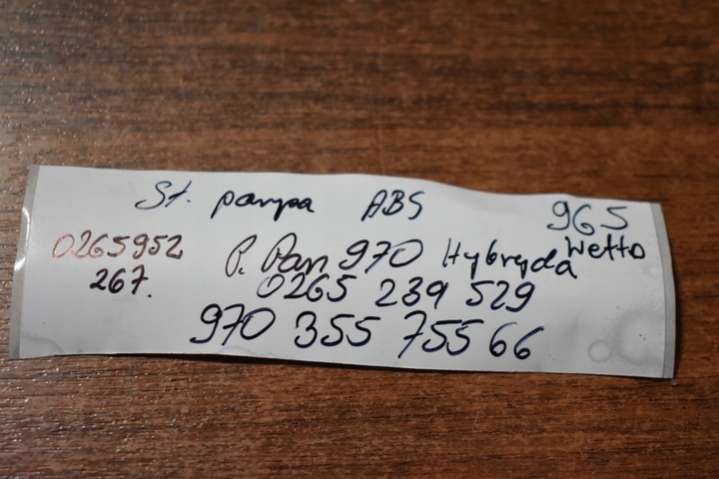 St. pompa ABS 965
0265952 P. Pan 970 Hybryda Netto
267. 0265 239 529
970 355 755 66